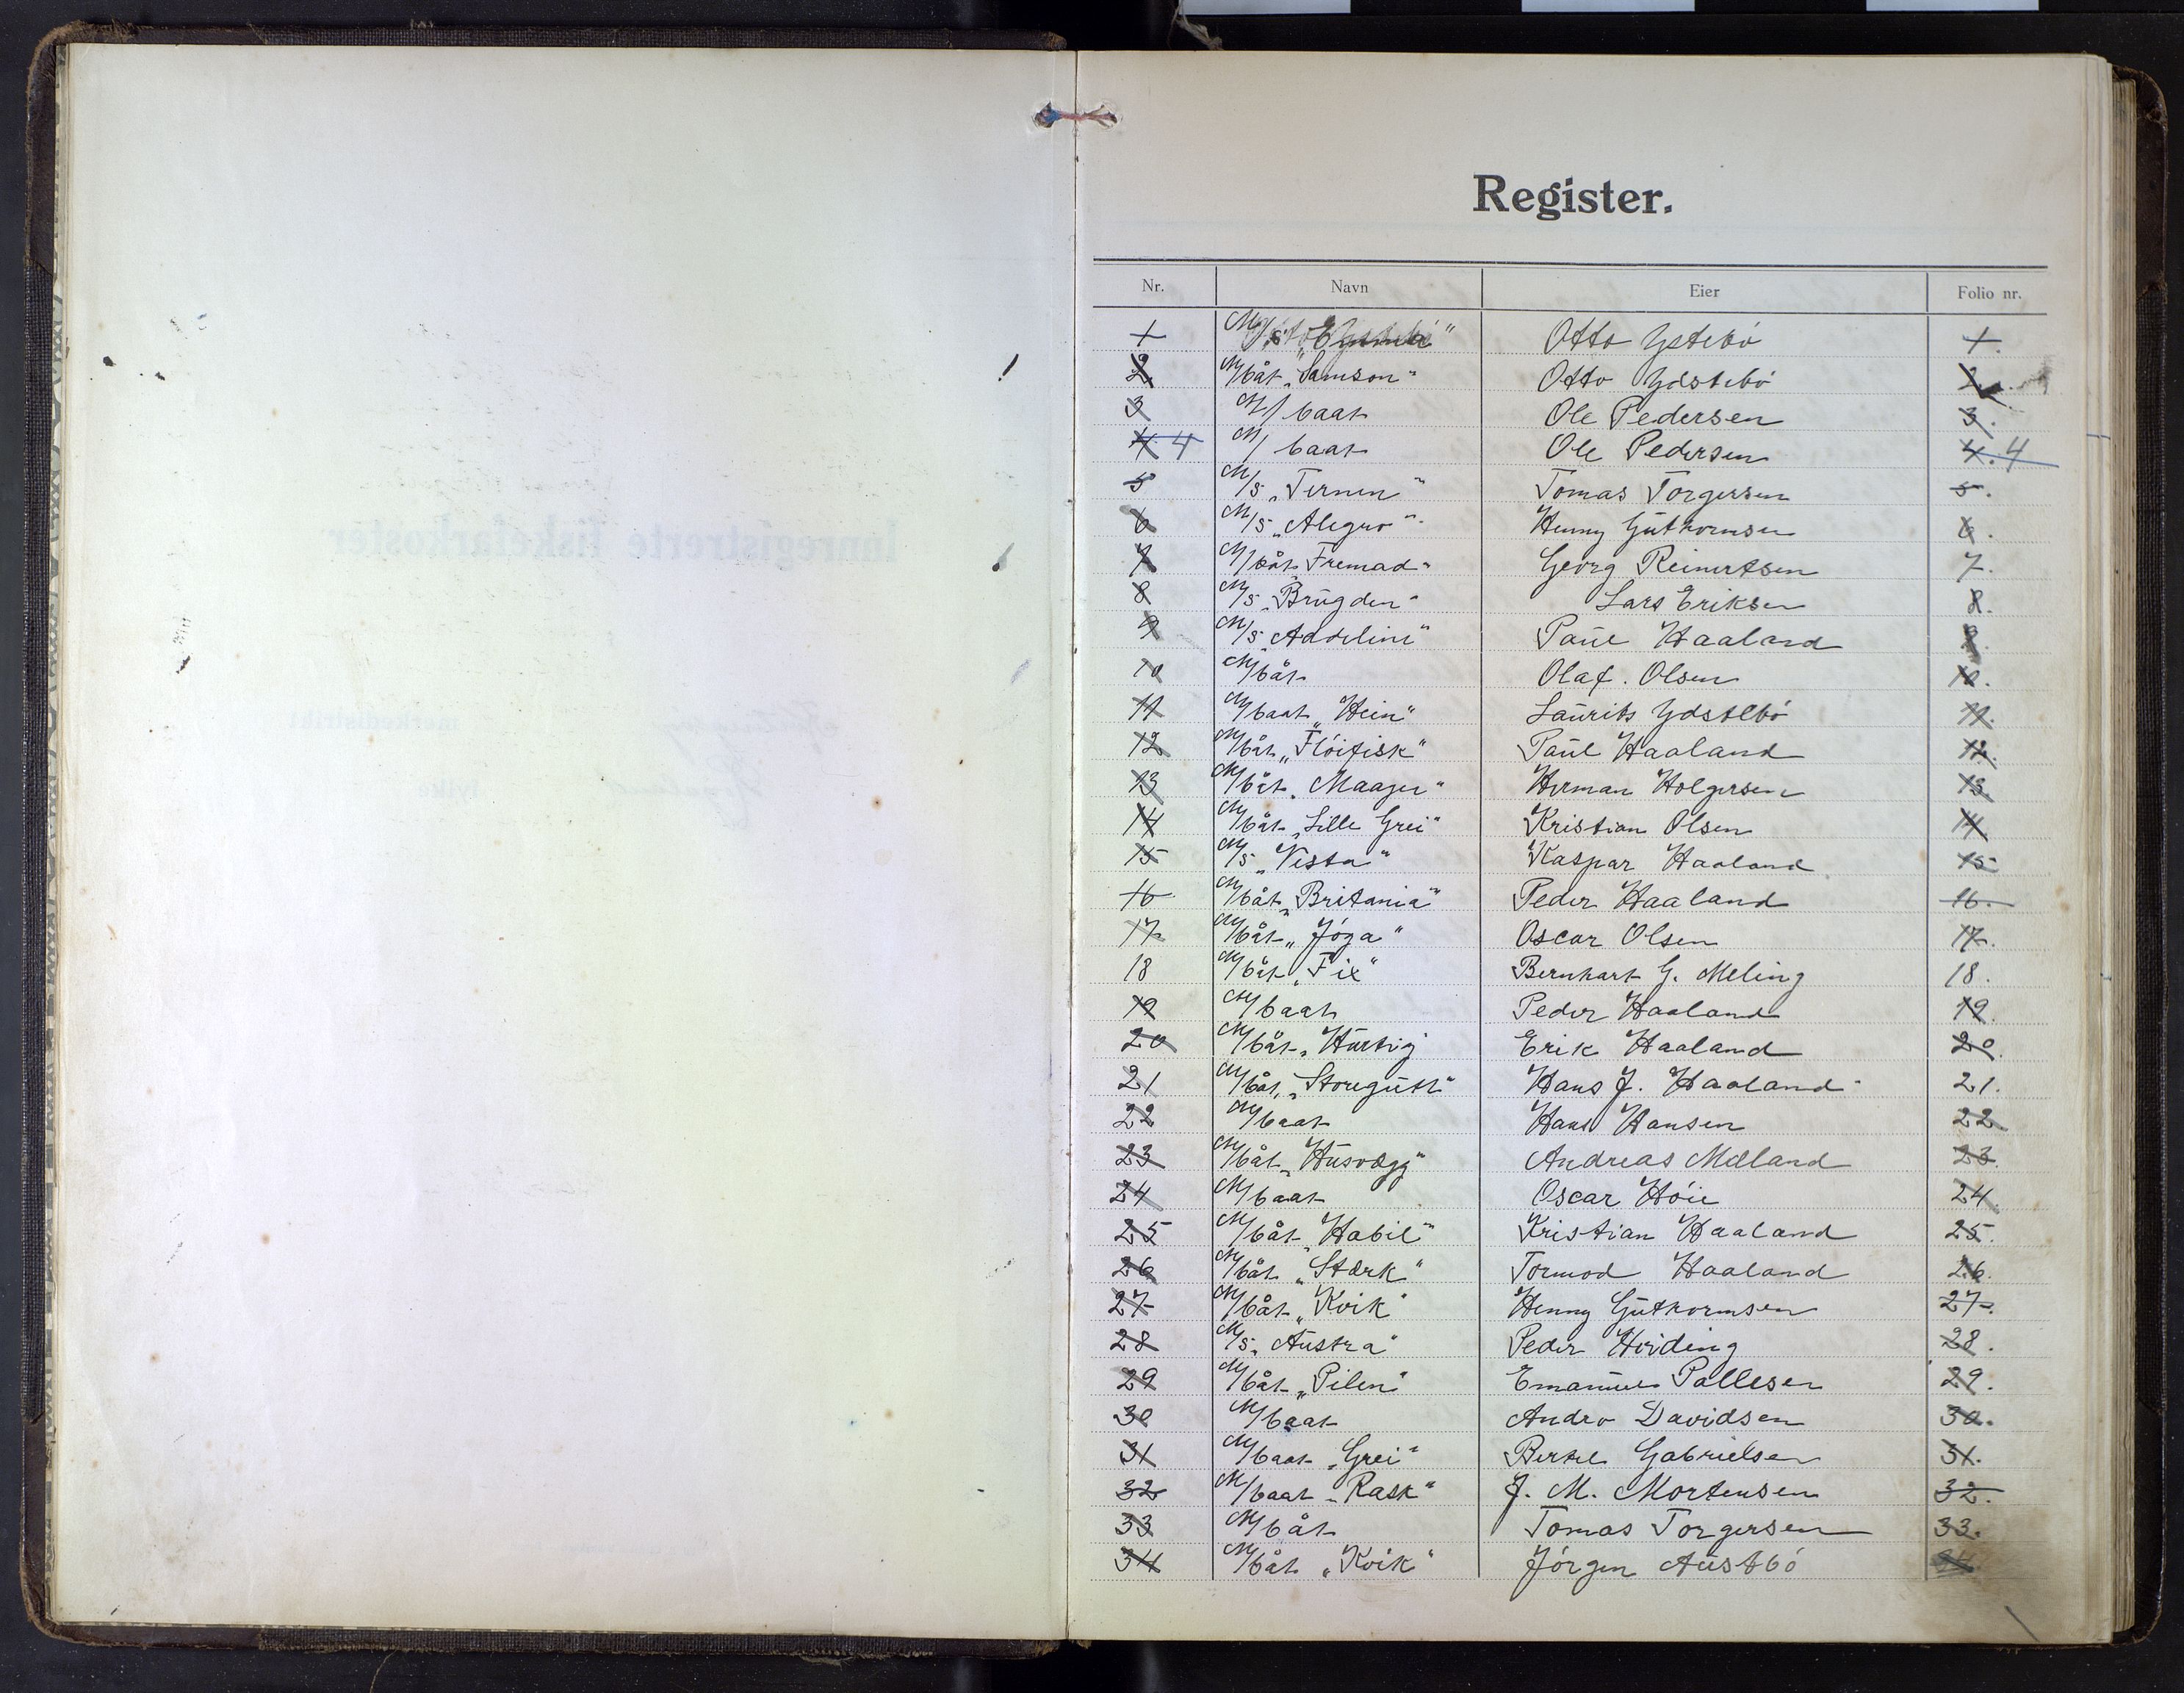 Register.
Nr. Navn Eier Folio nr.
1 M/s Otto Ystebö 1.
2 M/båt „Samson" Otto Ydstebö 2.
3 M/baat Ole Pedersen 3.
4 4 M/baat Ole Pedersen 4. 4
5 M/s „Ternen" Tomas Torgersen 5.
6 M/s „Alegro" Henny Guthormsen 6.
7 M/båt „Fremad" Georg Reinertsen 7.
8 M/s „Brugden" Lars Eriksen 8.
9 M/s „Addeline" Paul Haaland 9.
10 M/båt Olaf. Olsen 10.
11 M/baat „Hein" Laurits Ydstebö 11.
12 M/båt „Flöifisk" Paul Haaland 12.
13 M/båt „Maagen" Herman Holgersen 13.
14 M/båt „Lille Grei" Kristian Olsen 14
15 M/s „Vesta" Kaspar Haaland 15
16 M/båt „Britania" Peder Haaland 16.
17 M/båt „Jöga" Oscar Olsen 17.
18 M/båt „Fix" Bernhart G. Meling 18.
19 M/baat Peder Haaland 19.
20 M/båt „Hurtig Erik Haaland 20.
21 M/båt „Storegutt" Hans J. Haaland 21.
22 M/baat Hans Hansen 22
23 M/båt „Husvægg" Andreas Mæland 23.
24 M/baat Oscar Höie 24
25 M/båt „Habil" Kristian Haaland 25.
26 M/båt „Stærk" Tormod Haaland 26.
27 M/båt „Kvik" Henny Guthormsen 27.
28 M/s „Austra" Peder Hviding 28.
29 M/båt „Pilen" Emanuel Pallesen 29.
30 M/baat Andro Davidsen 30.
31 M/baat „Grei" Bertel Gabrielsen 31.
32 M/baat „Rask" J. M. Mortensen 32.
33 M/båt Tomas Torgersen 33.
34 M/båt „Kvik" Jörgen Austbö 34.